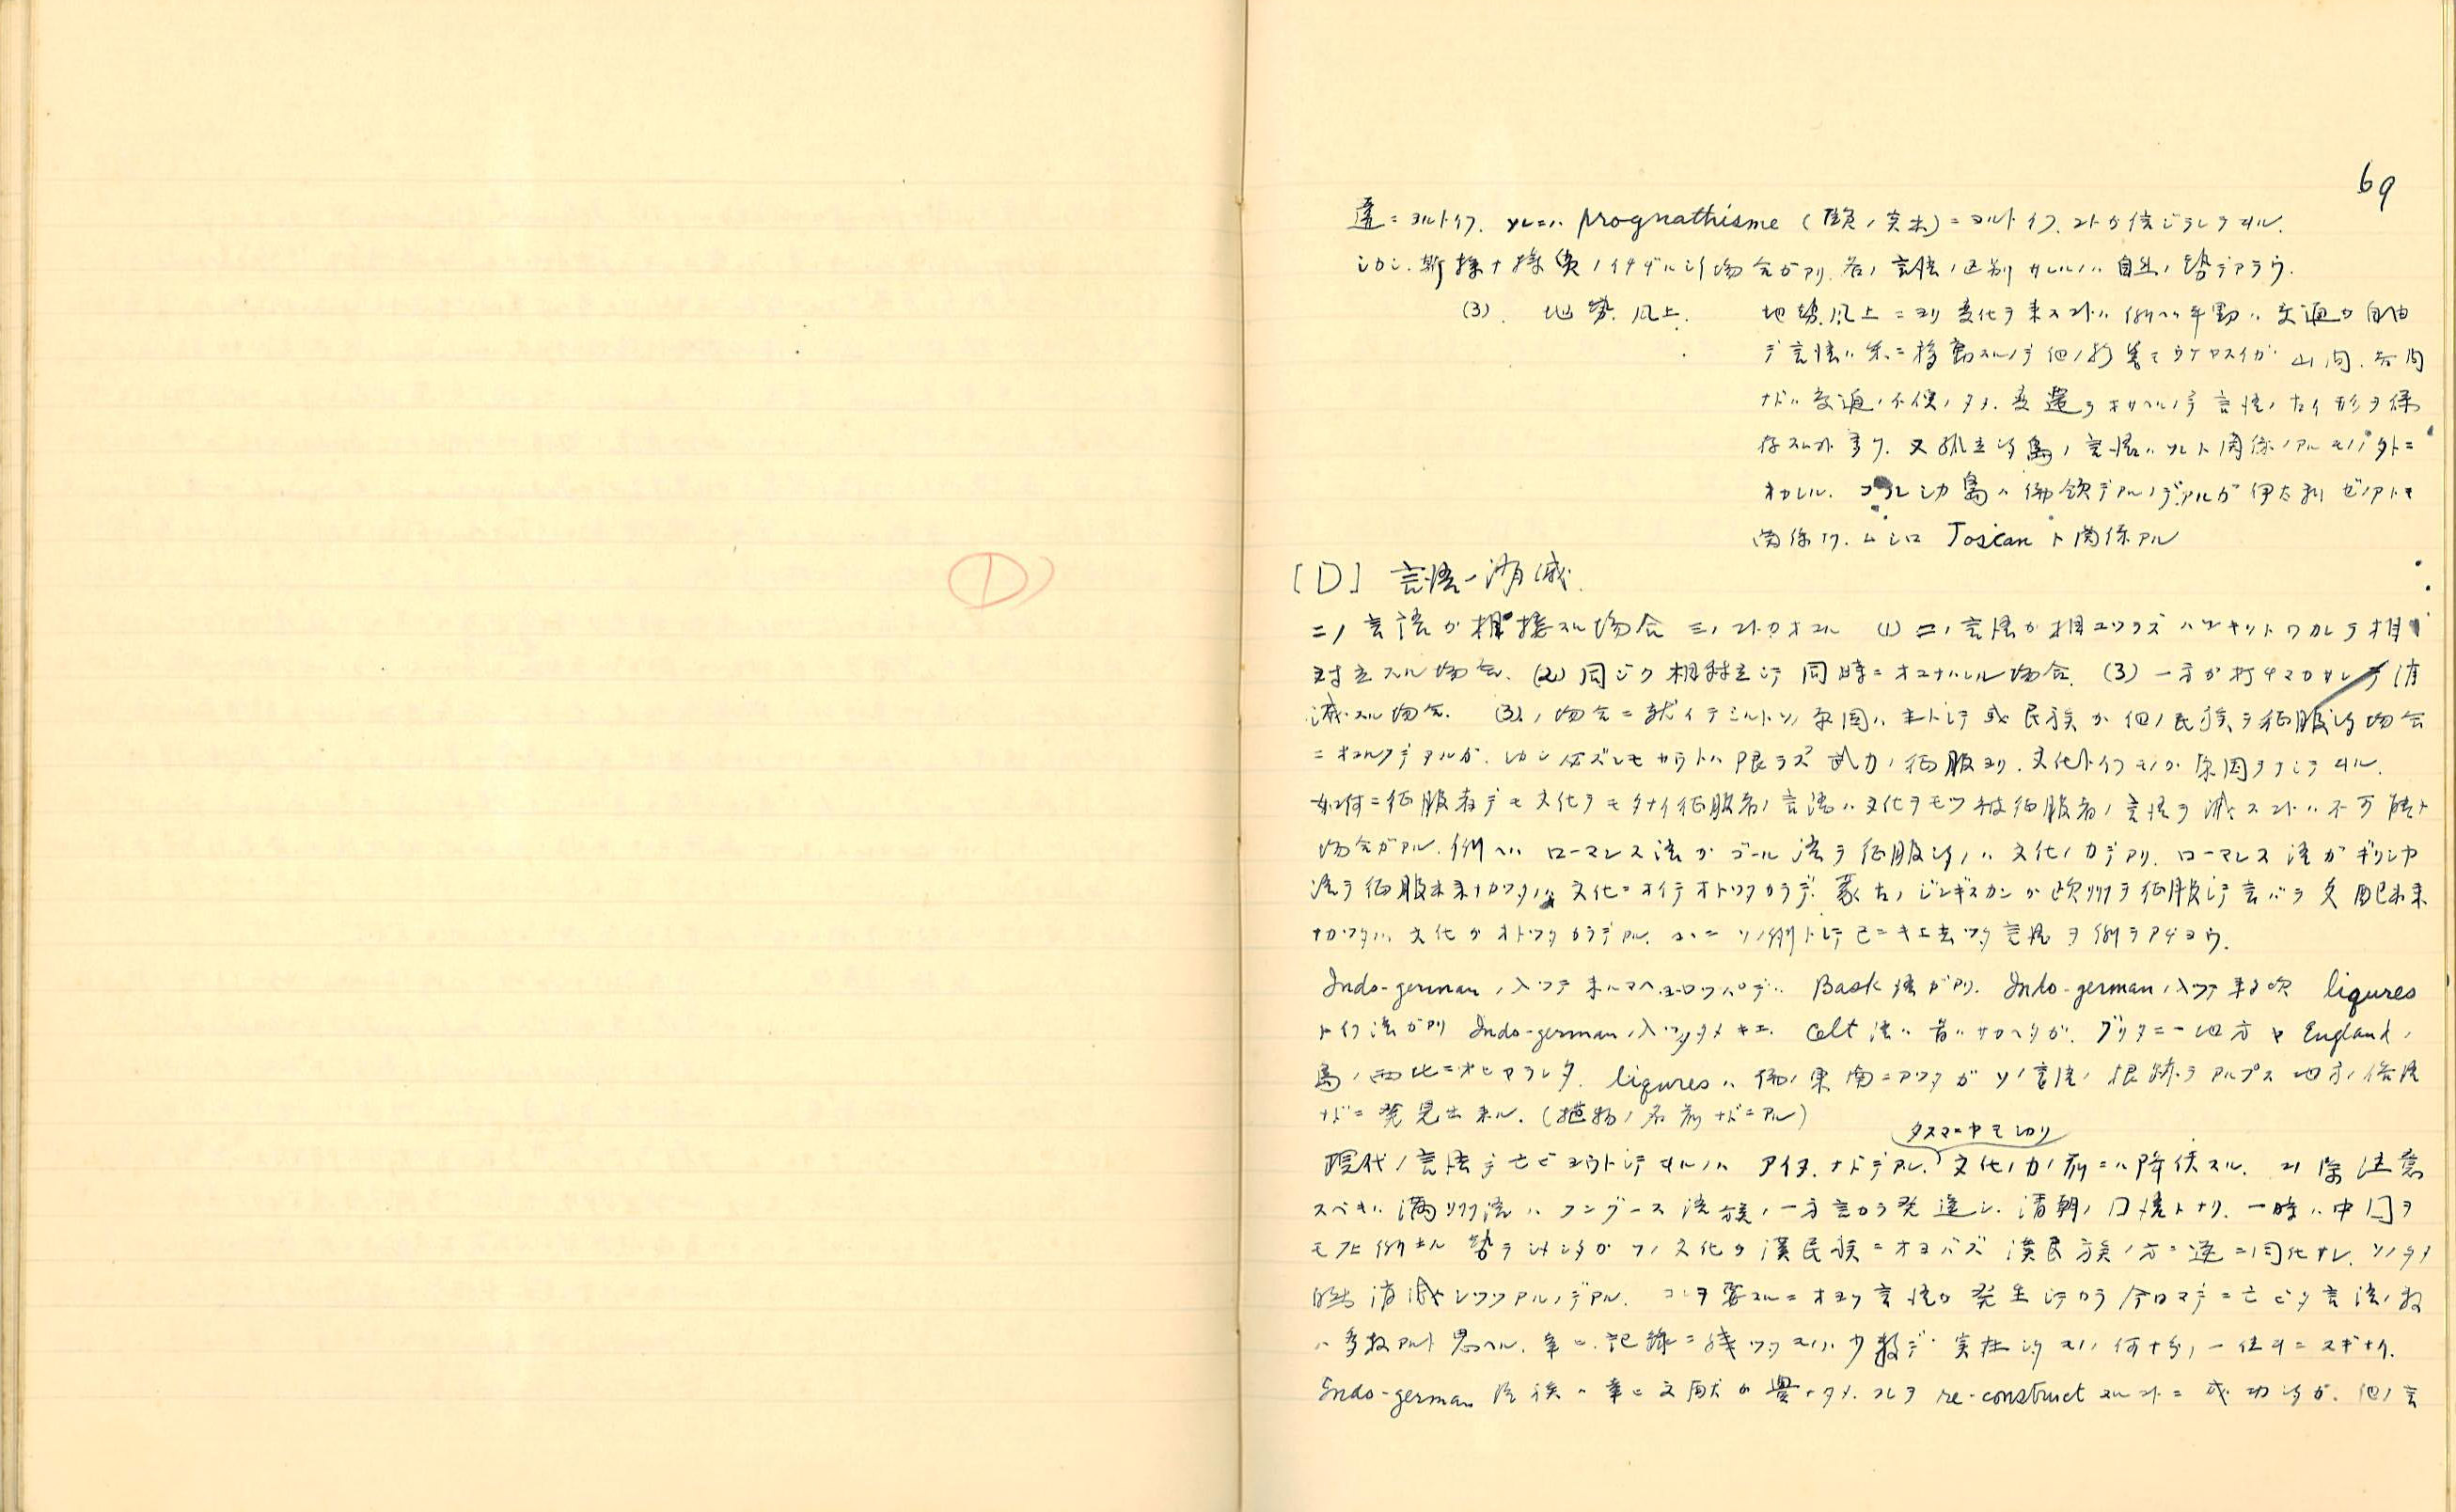 69
違ニヨルトイフ. ソレニハ prognathisme (顎ノ突出)ニヨルトイフ. コトガ信ジラレテヰル.
シカシ. 斯様ナ様ノ場合ガアリ. 各ノ言語ノ区別サレルノハ自然ノ勢デアラウ.
(3). 地勢. 風土. 地勢. 風土ニヨリ変化ヲ来スコトハ 例ヘバ平野ハ交通ガ自由
デ言語ハ常ニ移動スルノデ他ノ影響モウケヤスイガ 山間. 谷間
ナドハ交通ノ不便ノタメ. 変遷ヲオサヘルノデ言語ノ古イ形ヲ保
存スルコト多ク. 又孤立シタ島ノ言語ハソレト関係ノアルモノノ外ニ
オカレル. コルシカ島ハ佛領デアルノデアルガ伊太利ゼノアトモ
関係ナク. ムシロ Toscan ト関係アル
[D] 言語ノ消滅.
二ノ言語ガ相接スル場合 三ノコトガオコル (1) 二ノ言語ガ相ユヅラズハッキリトワカレテ相
対立スル場合. (2) 同ジク相対立シテ同時ニオコナハレル場合. (3) 一方ガ打チマカサレテ消
滅スル場合. (3)ノ場合ニ就イテミルトソノ原因ハ主トシテ或民族ガ他ノ民族ヲ征服シタ場合
ニオコルノデアルガ. シカシ必ズシモサウトハ限ラズ 武力ノ征服ヨリ. 文化トイフモノガ原因ヲナシテヰル.
如何ニ征服者デモ文化ヲモタナイ征服者ノ言語ハ文化ヲモツ被征服者ノ言語ヲ滅スコトハ不可能ナ
場合ガアル. 例ヘバ ローマンス語ガゴール語ヲ征服シタノハ文化ノ力デアリ. ローマンス語ガギリシヤ
語ヲ征服出来ナカツタノハ文化ニオイテオトツタカラデ. 蒙古ノジンギスカンガ欧洲ヲ征服シテ言バヲ支配出来
ナカツタノハ文化ガオトツタカラデアル. コヽニソノ例トシテ已ニキエ去ツタ言語ヲ例ヲアゲヨウ.
Indo-german ノ入ツテ来ルマヘヨーロツパデハ Bask 語ガアリ. Indo-german ノ入ツテ来タ頃 ligures
トイフ語ガアリ Indo-german ノ入ツタタメキエ. Celt 語ハ昔ハサカヘタガ. ブリタニー地方ヤ England ノ
島ノ西北ニオヒヤラレタ. ligures ハ佛ノ東南ニアツタガソノ言語ノ根跡ヲアルプス地方ノ俗語
ナドニ発見出来ル. (植物ノ名前ナドニアル)
タスマニヤモシカリ
現代ノ言語デ亡ビヨウトシテヰルノハ アイヌ. ナドデアル. 文化ノ力ノ前ニハ降伏スル. コノ際注意
スベキハ満洲語ハツングース語族ノ一方言カラ発達シ. 清朝ノ口語トナリ. 一時ハ中国ヲ
勢ヲシメシタガソノ文化ガ漢民族ニオヨバズ漢民族ノ方ニ逆ニ同化サレ. ソノタメ
消滅シツツアルノデアル. コレヲ要スルニオヨソ言語ガ発生シテカラ今日マデニ亡ビタ言語ノ数
ハ多数アルト思ヘル. 幸ヒ. 記録ニ残ツタモノハ少数デ 実在シタモノノ何十分ノ一位ヰニスギナイ.
Indo-german 語族ハ幸ヒ文献ガ豊ナタメ. コレヲ re-construct スルコトニ成功シタガ. 他ノ言